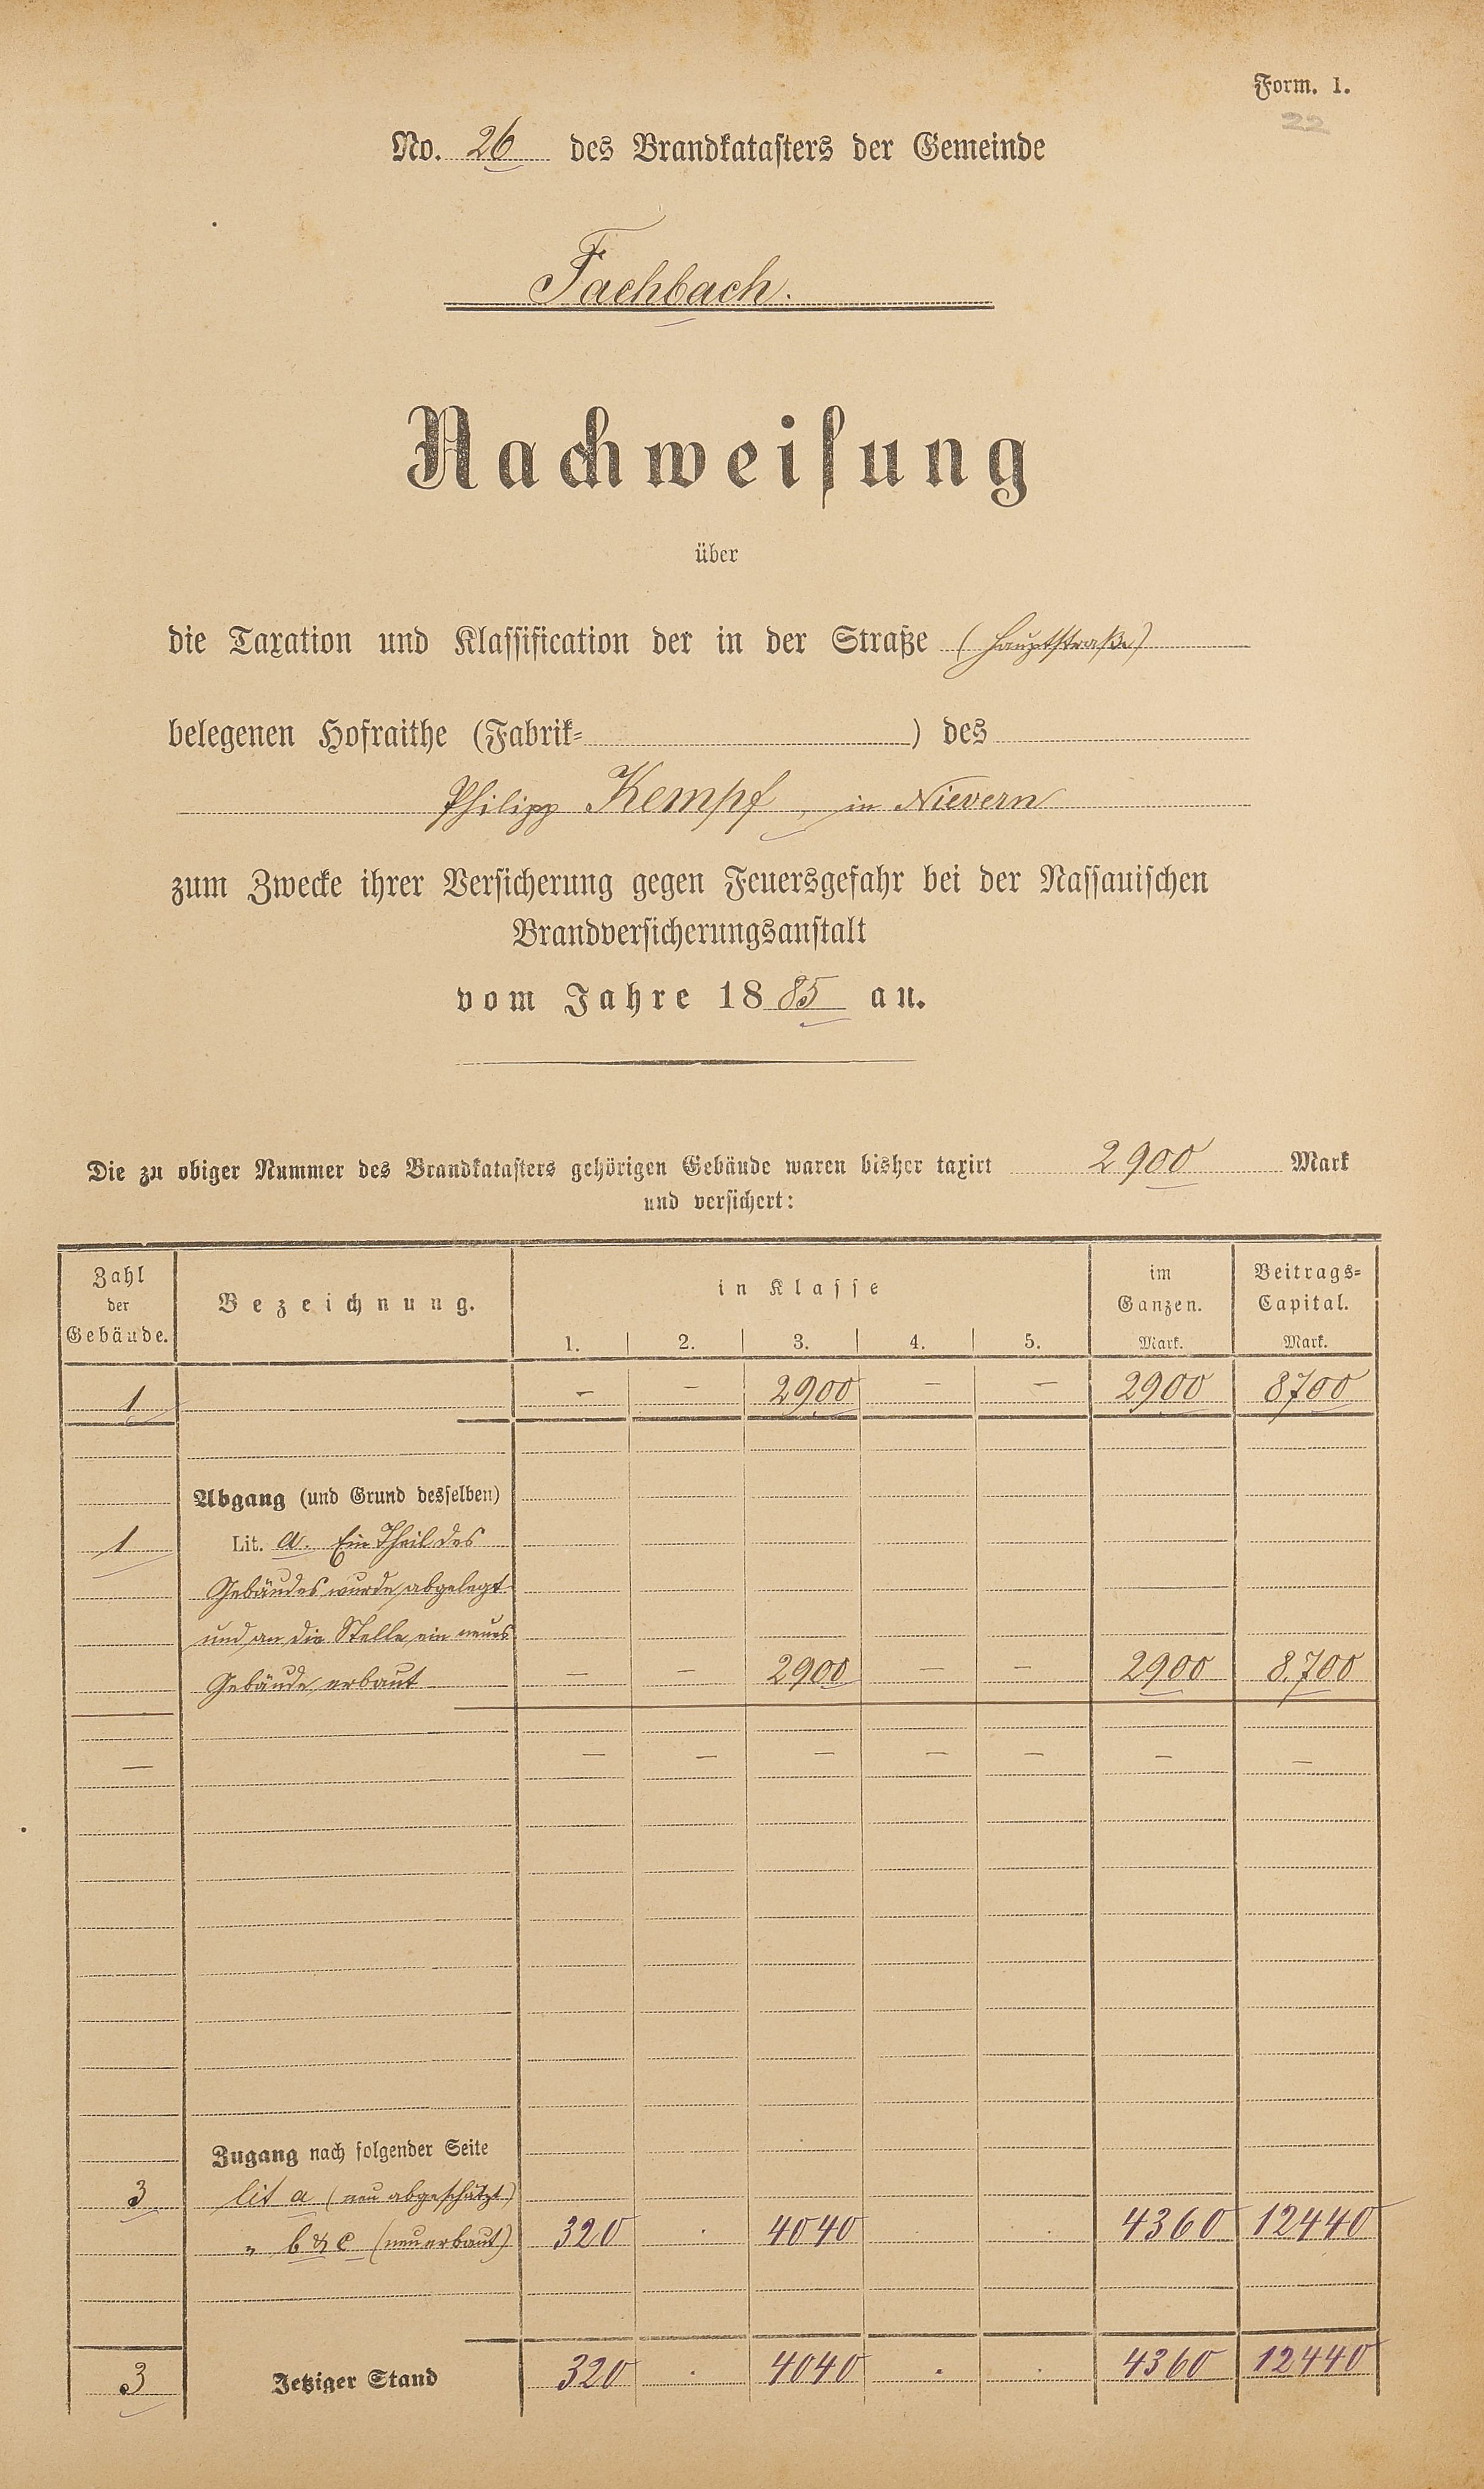 Form. 1.
22
No. 26 des Brandkatasters der Gemeinde
Fachbach.
Nachweisung
über
die Taxation und Klassification der in der Straße (Hauptstraße)
belegenen Hofraithe (Fabrik- ) des
Philipp Kempf, in Nievern
zum Zwecke ihrer Versicherung gegen Feuersgefahr bei der Nassauischen
Brandversicherungsanstalt
vom Jahre 1885 an.
Die zu obiger Nummer des Brandkatasters gehörigen Gebäude waren bisher taxirt 2900 Mark
und versichert:
Zahl der Gebäude. Bezeichnung. in Klasse im Ganzen. Beitrags-Capital.
1. 2. 3. 4. 5. Mark. Mark.
1 – – 2900 – – 2900 8700
Abgang (und Grund desselben)
1 Lit. a. Ein Theil des
Gebäudes wurde abgelegt
und an die Stelle ein neues
Gebäude erbaut – – 2900 – – 2900 8.700
– – – – – – – –
Zugang nach folgender Seite
3 lit a (neu abgeschätzt)
" b & c (neu erbaut) 320 . 4040 . . 4360 12440
3 Jetziger Stand 320 . 4040 . . 4360 12440